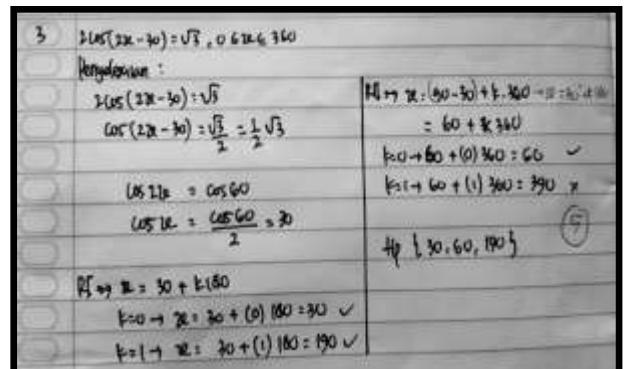 3 2cos(2x-30) = √3 , 0 ≤ x ≤ 360
Penyelesaian :
2cos(2x-30) = √3
cos(2x-30) = √3/2 = 1/2 √3
cos 2x = cos 60
cos x = cos 60/2 = 30
x = 30 + k180
k=0 → x = 30 + (0) 180 = 30 ✓
k=1 → x = 30 + (1) 180 = 190 ✓
= 60 + k 360
k=0 → 60 + (0) 360 = 60 ✓
k=1 → 60 + (1) 360 = 390 x
5
Hp { 30, 60, 190 }